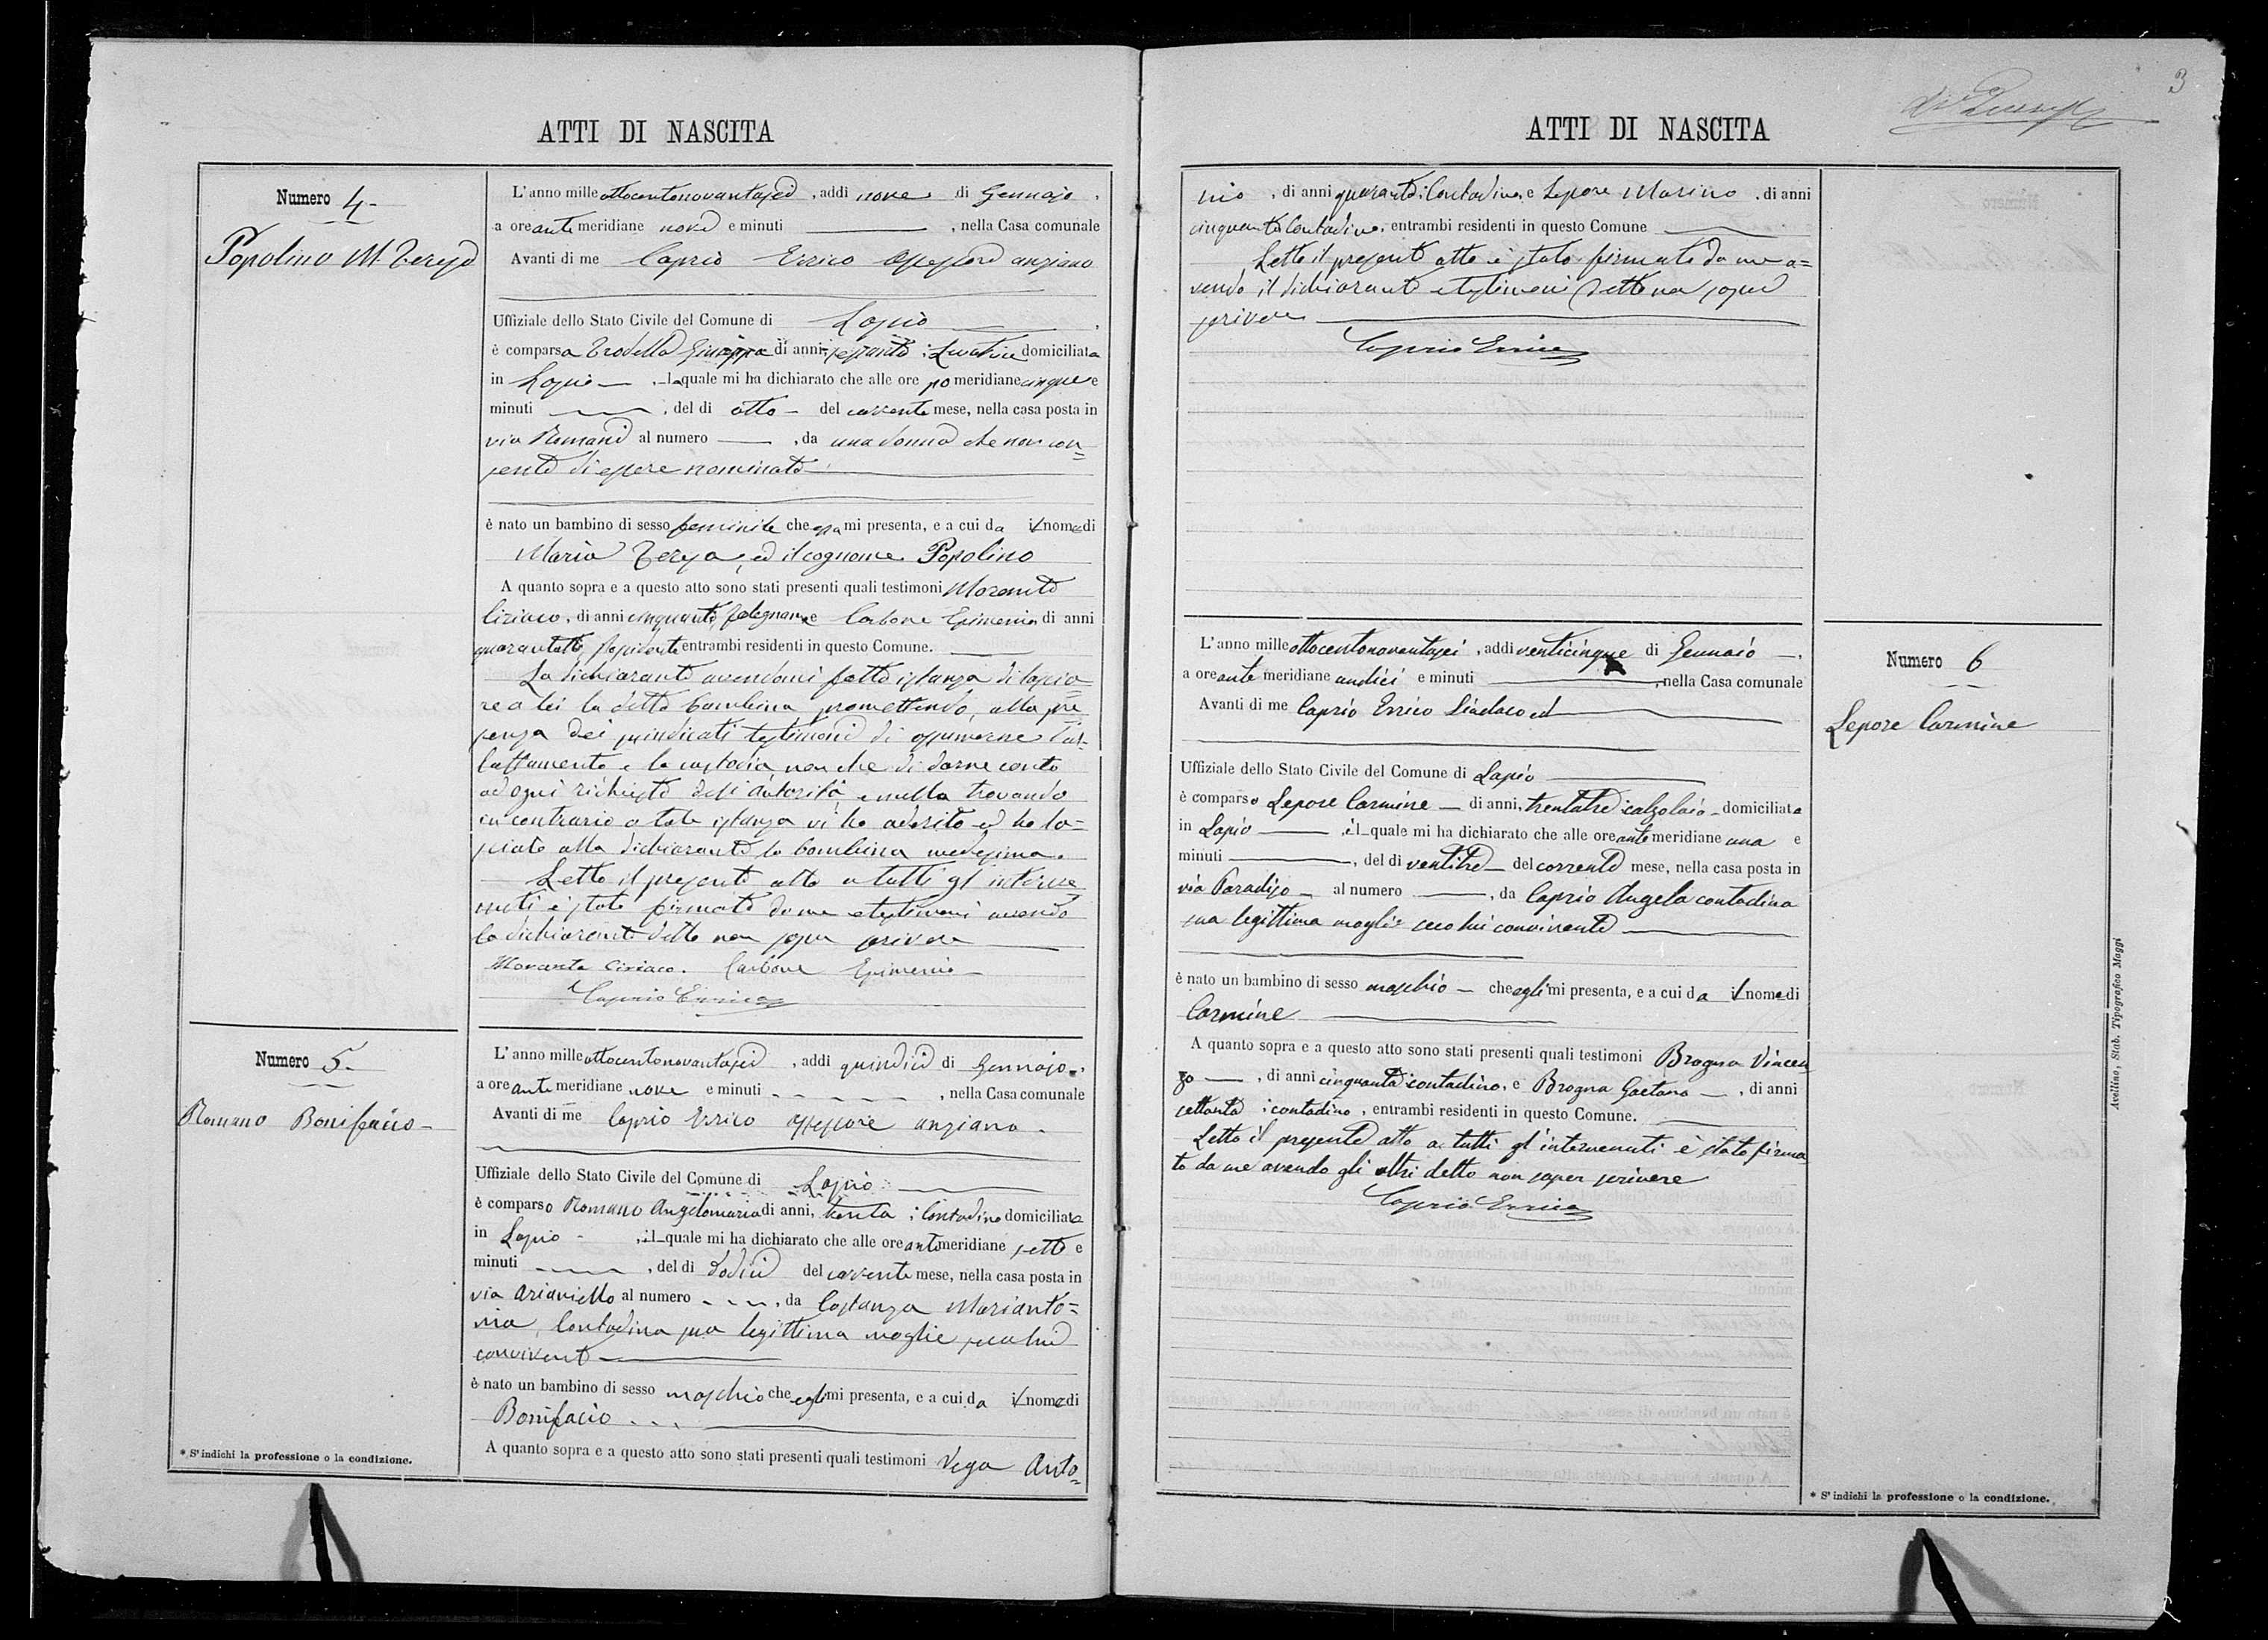 3
ATTI DI NASCITA
Numero 4-
Popolino M. Teresa
L'anno mille ottocentonovantasei, addi nove di Gennajo,
a ore anti meridiane nove e minuti , nella Casa comunale
Avanti di me Caprio Errico Assessore anziano
Uffiziale dello Stato Civile del Comune di Lapio
è comparsa Trodella Giuseppa di anni sessanta; Levatrice domiciliata
in Lapio , la quale mi ha dichiarato che alle ore po meridiane cinque e
minuti , del di otto del corrente mese, nella casa posta in
via Romani al numero , da una donna che non con=
sente di essere nominata
è nato un bambino di sesso feminile che essa mi presenta, e a cui da il nome di
Maria Teresa, ed il cognome Popolino
A quanto sopra e a questo atto sono stati presenti quali testimoni Morante
Ciriaco, di anni cinquanta, falegname e Carbone Epimenio di anni
quarantotto, possidente entrambi residenti in questo Comune.
La dichiarante avendomi fatto istanza di lascia=
re a lei la detta bambina promettendo, alla pre
senza dei suindicati testimoni di assumerne l'al-
lattamento e la custodia non che di darne conto
ad ogni richiesta dell'autorità e nulla trovando
in contrario a tale istanza vi ho aderito ed ho la=
sciato alla dichiarante la bambina medesima.
Letto il presente atto a tutti gl'interve
nuti è stato firmato da me e testimoni avendo
la dichiarante detto non saper scrivere
Morante Ciriaco. Carbone Epimenio
Caprio Errico
Numero 5-
Romano Bonifacio-
L'anno mille ottocentonovantasei, addi quindici di Gennajo,
a ore anti meridiane nove e minuti , nella Casa comunale
Avanti di me Caprio Errico Assessore anziano
Uffiziale dello Stato Civile del Comune di Lapio
è comparso Romano Angelomaria di anni, trenta; Contadino domiciliato
in Lapio , il quale mi ha dichiarato che alle ore anti meridiane sette e
minuti , del di dodici del corrente mese, nella casa posta in
via Arianiello al numero , da Costanza Marianto=
nia, Contadina sua legittima moglie, seco lui
convivente
è nato un bambino di sesso maschio che egli mi presenta, e a cui da il nome di
Bonifacio
A quanto sopra e a questo atto sono stati presenti quali testimoni Vega Anto=
* S'indichi la professione o la condizione.
ATTI DI NASCITA
nio, di anni quaranta; Contadino, e Lepore Marino, di anni
cinquanta Contadino, entrambi residenti in questo Comune
Letto il presente atto è stato firmato da me a=
vendo il dichiarante e testimoni detto non saper
scrivere
Caprio Errico
Numero 6
Lepore Carmine
L'anno mille ottocentonovantasei, addi venticinque di Gennaio,
a ore ante meridiane undici e minuti , nella Casa comunale
Avanti di me Caprio Errico Sindaco ed
Uffiziale dello Stato Civile del Comune di Lapio
è comparso Lepore Carmine di anni, trentatre calzolaio domiciliato
in Lapio , il quale mi ha dichiarato che alle ore ante meridiane una e
minuti , del di ventitre del corrente mese, nella casa posta in
via Paradiso al numero , da Caprio Angela contadina
sua legittima moglie seco lui convivente
è nato un bambino di sesso maschio che egli mi presenta, e a cui da il nome di
Carmine
A quanto sopra e a questo atto sono stati presenti quali testimoni Brogna Vincen
zo , di anni cinquanta contadino, e Brogna Gaetano , di anni
settanta; contadino, entrambi residenti in questo Comune.
Letto il presente atto a tutti gl'intervenuti è stato firma
to da me avendo gli altri detto non saper scrivere
Caprio Errico
* S'indichi la professione o la condizione.
Avellino, Stab. Tipografico Maggi